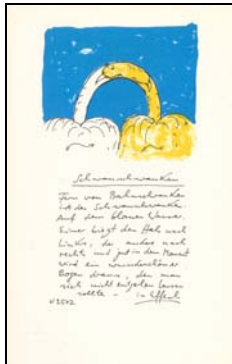 Schwanschwanken
Fern von Bahnschranken
ist das Schwanschwanken
Auf dem blauen Wasser.
Einer biegt den Hals nach
links, der andere nach
rechts und gut in dem Moment
wird ein wunderschöner
Bogen draus, den man
sich nicht entgehen lassen
sollte –